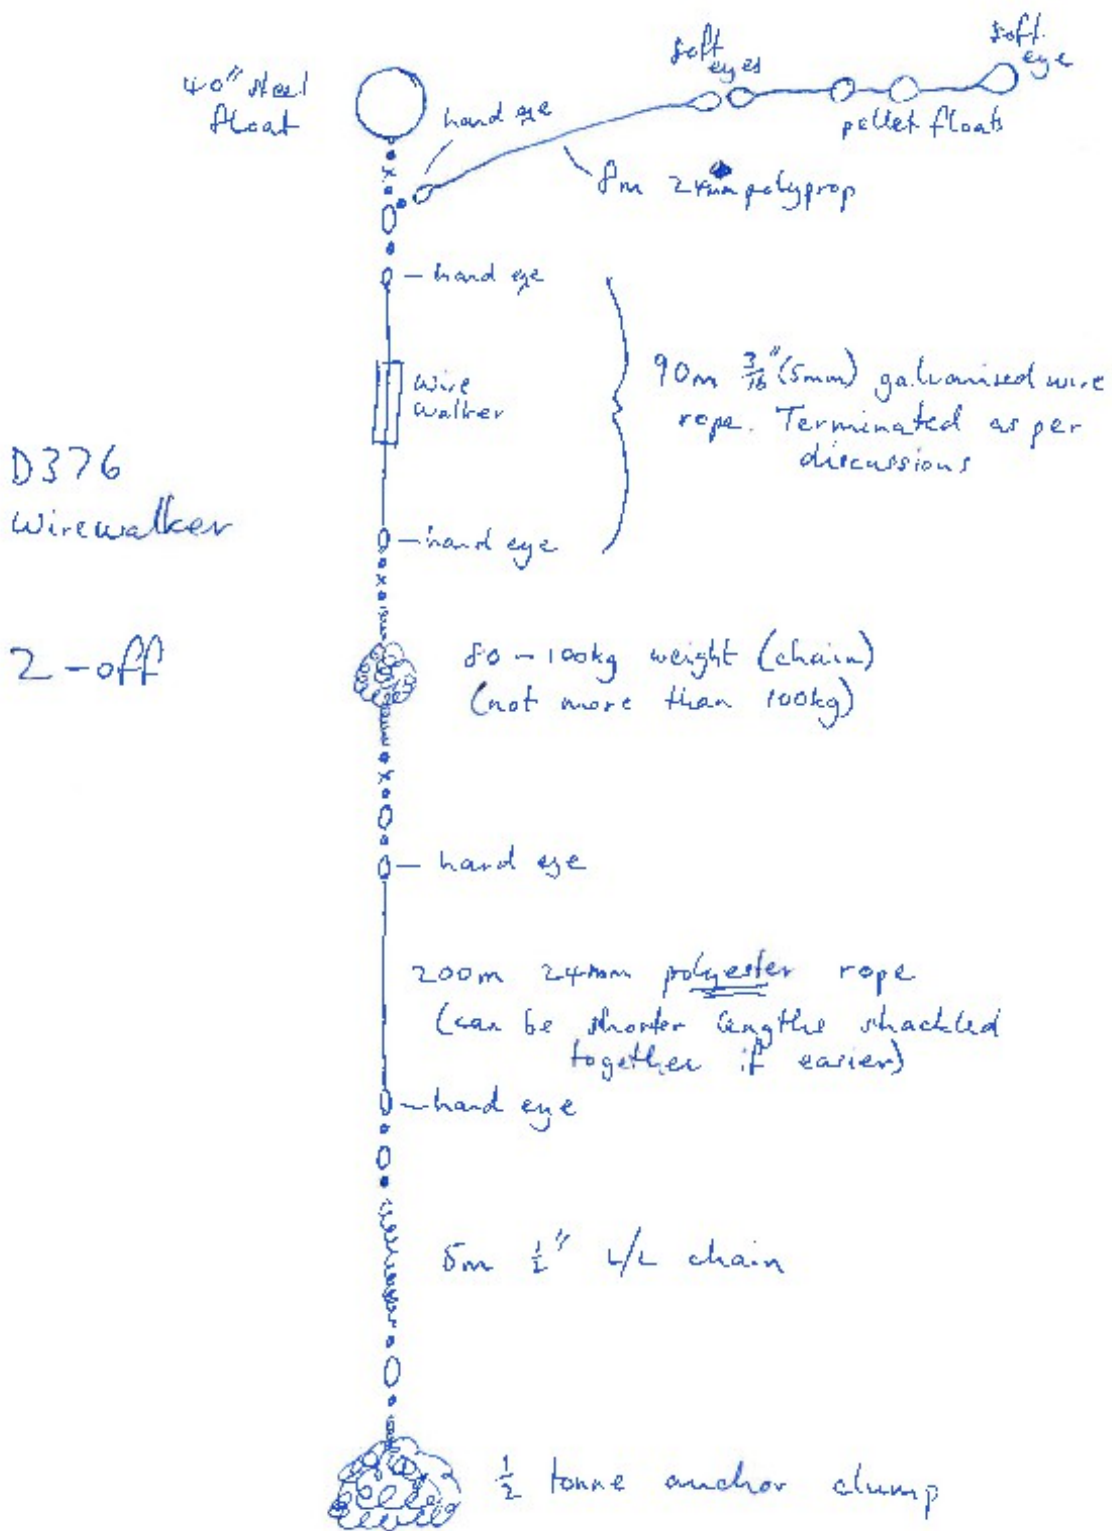 40" steel
float
hard eye
soft
eyes
soft
eye
pellet floats
8m 24mm polyprop
hard eye
wire
walker
90m 3/16" (5mm) galvanised wire
rope. Terminated as per
discussions
D376
Wirewalker
hard eye
2-off
80-100kg weight (chain)
(not more than 100kg)
hard eye
200m 24mm polyester rope
(can be shorter lengths shackled
together if easier)
hard eye
5m 1/2" L/L chain
1/2 tonne anchor clump